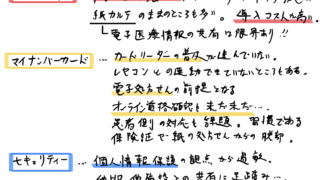 紙カルテのままのところも多い。導入コストが高い。
電子医療情報の共有に限界あり!!
マイナンバーカード … カードリーダーの普及が進んでいない。
レセコンとの連動できていないところもある。
電子処方せんの前提となる
オンライン資格確認もまだまだ…。
患者側の対応も課題。習慣である
保険証や紙の処方せんからの脱却。
セキュリティー … 個人情報保護の観点から過敏。